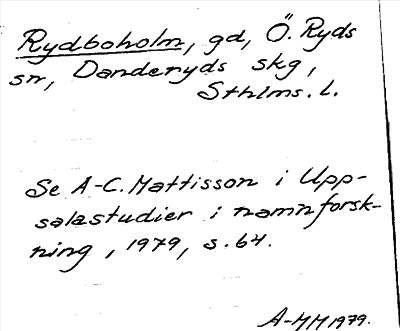 Rydboholm, gd, Ö. Ryds
sn, Danderyds skg,
Sthlms. l.
Se A-C. Mattisson i Upp-
salastudier i namnforsk-
ning, 1979, s. 64.
A-MM 1979.